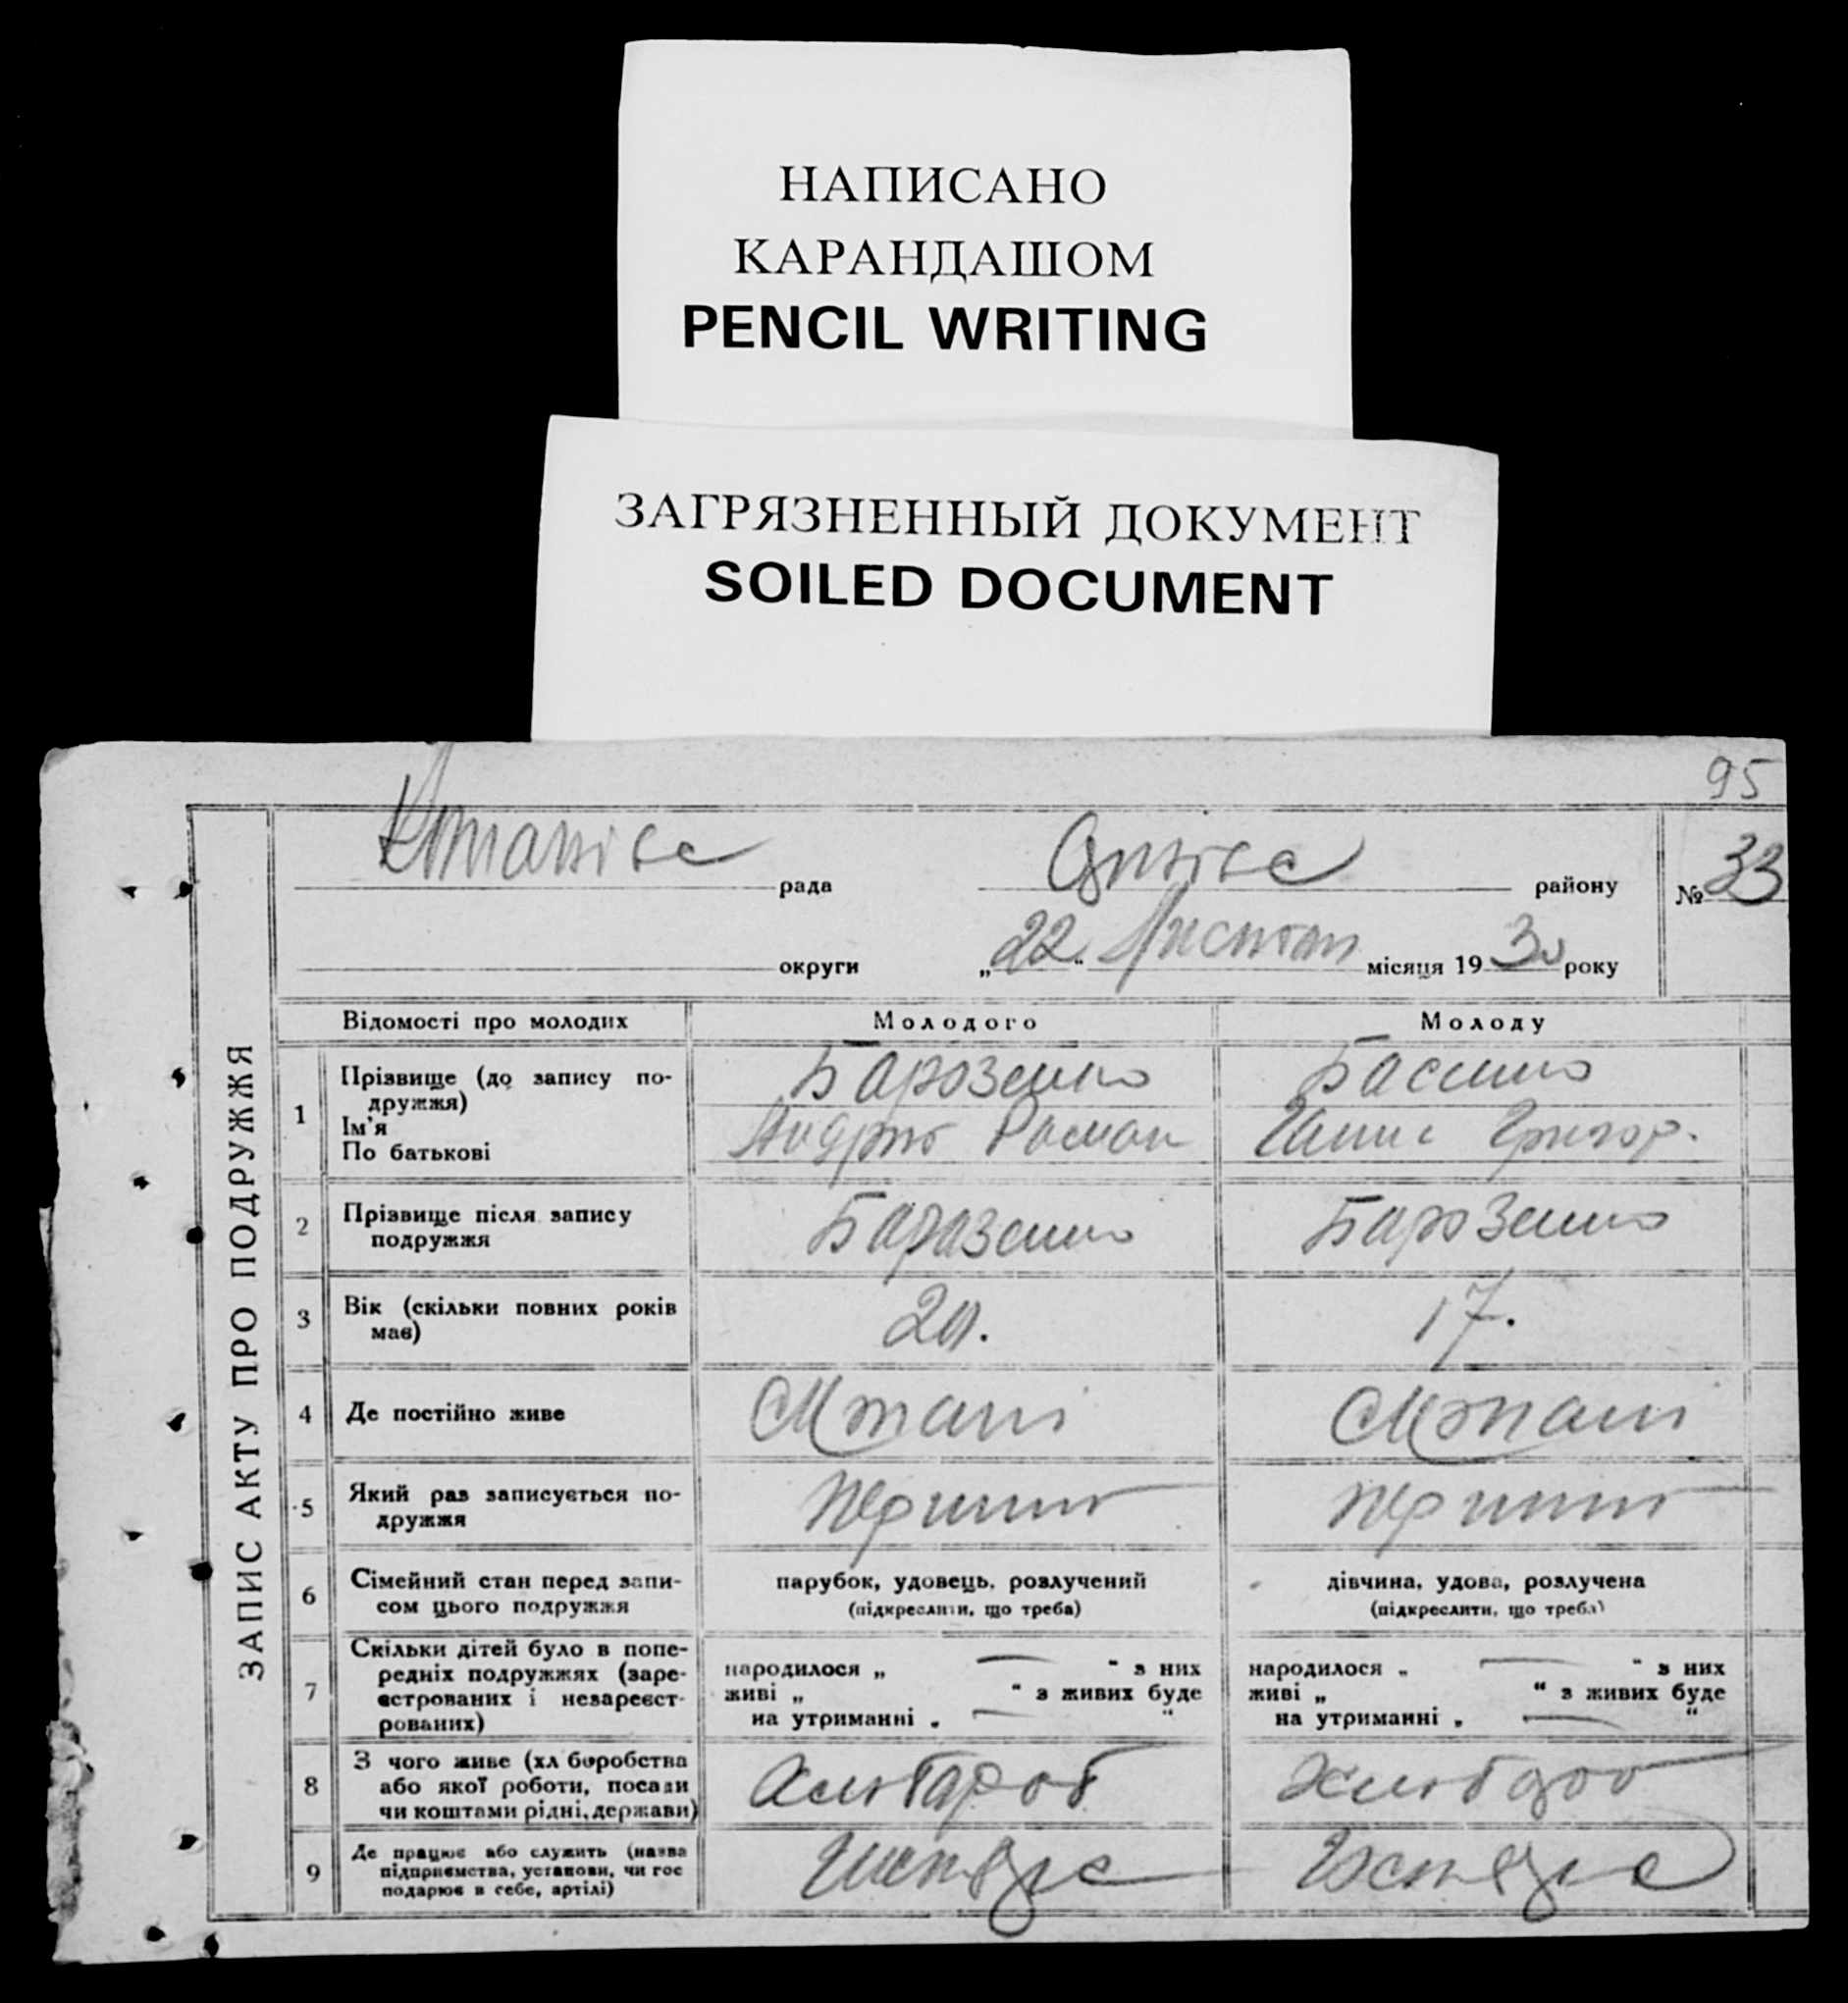 НАПИСАНО
КАРАНДАШОМ
PENCIL WRITING
ЗАГРЯЗНЕННЫЙ ДОКУМЕНТ
SOILED DOCUMENT
95
ЗАПИС АКТУ ПРО ПОДРУЖЖЯ
рада
району
№ 33
округи
„22“
місяця 1930 року
Відомості про молодих
Молодого
Молоду
1
Прізвище (до запису по-
дружжя)
Ім'я
По батькові
Барозенко
Роман
Григор.
2
Прізвище після запису
подружжя
Баразенко
Барозенко
3
Вік (скільки повних років
має)
17.
4
Де постійно живе
5
Який раз записується по-
дружжя
перший
перший
6
Сімейний стан перед запи-
сом цього подружжя
парубок, удовець, розлучений
(підкреслити, що треба)
дівчина, удова, розлучена
(підкреслити, що треба)
7
Скільки дітей було в попе-
редніх подружжях (заре-
єстрованих і незареєст-
рованих)
народилося „ — “ з них
живі „ “ з живих буде
на утриманні „ — “
народилося „ — “ з них
живі „ “ з живих буде
на утриманні „ — “
8
З чого живе (хліборобства
або якої роботи, посади
чи коштами рідні, держави)
9
Де працює або служить (назва
підприємства, установи, чи гос
подарює в себе, артілі)